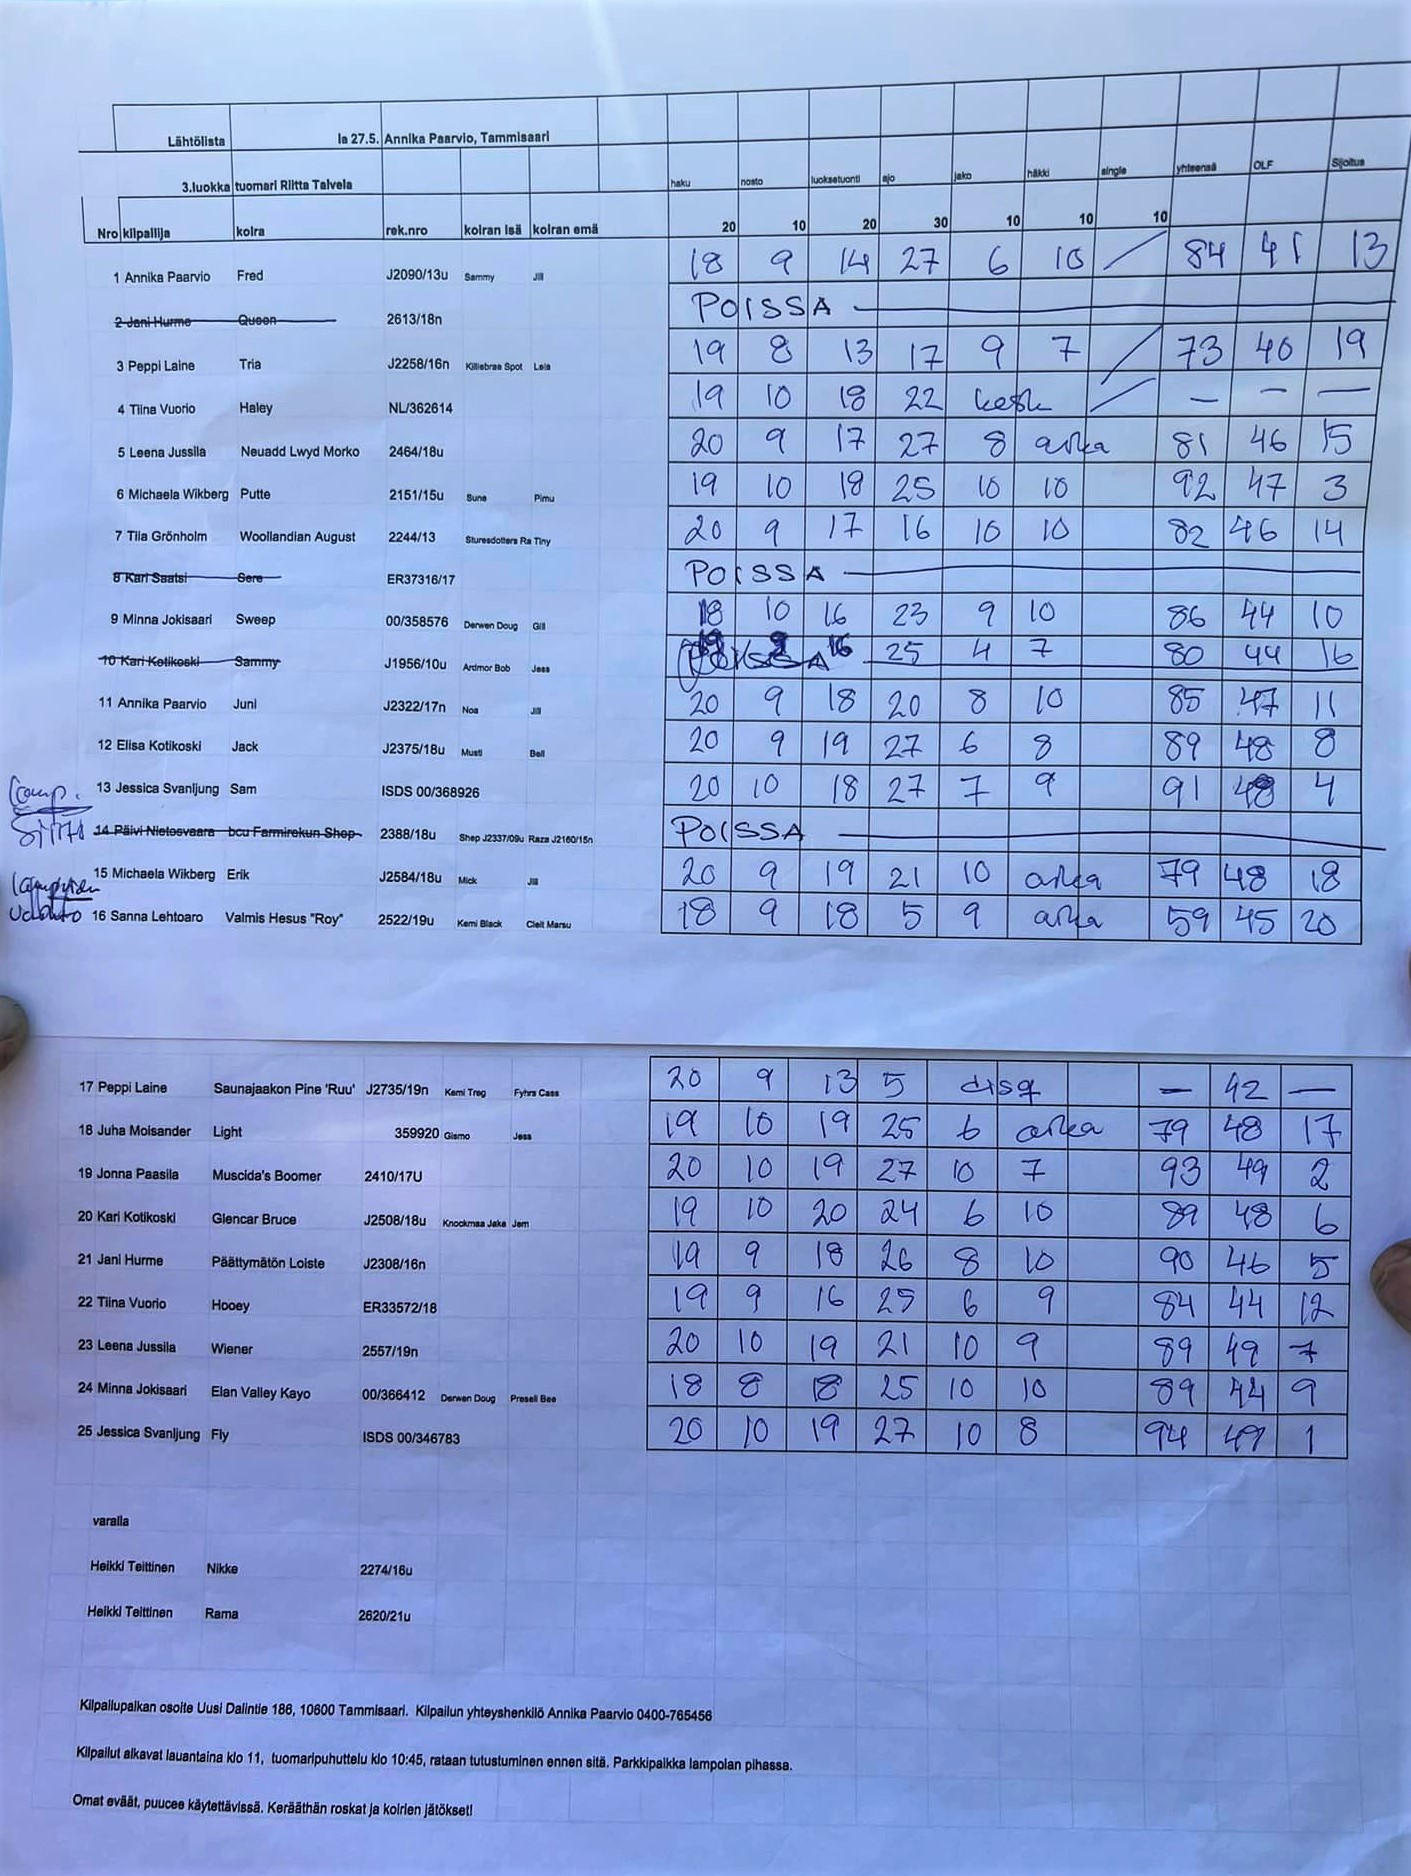 Lähtölista la 27.5. Annika Paarvio, Tammisaari
3.luokka tuomari Riitta Talvela haku nosto luoksetuonti ajo jako häkki single yhteensä OLF Sijoitus
Nro kilpailija koira rek.nro koiran isä koiran emä 20 10 20 30 10 10 10
1 Annika Paarvio Fred J2090/13u Sammy Jill 18 9 14 27 6 10 / 84 41 13
2 Jani Hurme Queen 2613/18n POISSA
3 Peppi Laine Tria J2258/16n Killiebrae Spot Lela 19 8 13 17 9 7 / 73 40 19
4 Tiina Vuorio Haley NL/362614 19 10 18 22 kesk / — — —
5 Leena Jussila Neuadd Lwyd Morko 2464/18u 20 9 17 27 8 aika 81 46 15
6 Michaela Wikberg Putte 2151/15u Sune Pimu 19 10 18 25 10 10 92 47 3
7 Tiia Grönholm Woollandian August 2244/13 Sturesdotters Ra Tiny 20 9 17 16 10 10 82 46 14
8 Kari Saatsi Sere ER37316/17 POISSA
9 Minna Jokisaari Sweep 00/358576 Derwen Doug Gill 18 10 16 23 9 10 86 44 10
10 Kari Kotikoski Sammy J1956/10u Ardmor Bob Jess POISSA 19 9 16 25 4 7 80 44 16
11 Annika Paarvio Juni J2322/17n Noa Jill 20 9 18 20 8 10 85 47 11
12 Elisa Kotikoski Jack J2375/18u Musti Bell 20 9 19 27 6 8 89 48 8
13 Jessica Svanljung Sam ISDS 00/368926 20 10 18 27 7 9 91 48 4
14 Päivi Nietosvaara bcu Farmirekun Shep 2388/18u Shep J2337/09u Raza J2160/15n POISSA
15 Michaela Wikberg Erik J2584/18u Mick Jill 20 9 19 21 10 aika 79 48 18
16 Sanna Lehtoaro Valmis Hesus "Roy" 2522/19u Kemi Black Cleit Marsu 18 9 18 5 9 aika 59 45 20
17 Peppi Laine Saunajaakon Pine 'Ruu' J2735/19n Kemi Treg Fyhrs Cass 20 9 13 5 disq — 42 —
18 Juha Moisander Light 359920 Gismo Jess 19 10 19 25 6 aika 79 48 17
19 Jonna Paasila Muscida's Boomer 2410/17U 20 10 19 27 10 7 93 49 2
20 Kari Kotikoski Glencar Bruce J2508/18u Knockmaa Jake Jem 19 10 20 24 6 10 89 48 6
21 Jani Hurme Päättymätön Loiste J2308/16n 19 9 18 26 8 10 90 46 5
22 Tiina Vuorio Hooey ER33572/18 19 9 16 25 6 9 84 44 12
23 Leena Jussila Wiener 2557/19n 20 10 19 21 10 9 89 49 7
24 Minna Jokisaari Elan Valley Kayo 00/366412 Derwen Doug Preseli Bee 18 8 18 25 10 10 89 44 9
25 Jessica Svanljung Fly ISDS 00/346783 20 10 19 27 10 8 94 49 1
varalla
Heikki Teittinen Nikke 2274/16u
Heikki Teittinen Rama 2620/21u
Kilpailupaikan osoite Uusi Dalintie 186, 10600 Tammisaari. Kilpailun yhteyshenkilö Annika Paarvio 0400-765456
Kilpailut alkavat lauantaina klo 11, tuomaripuhuttelu klo 10:45, rataan tutustuminen ennen sitä. Parkkipaikka lampolan pihassa.
Omat eväät, puucee käytettävissä. Kerääthän roskat ja koirien jätökset!